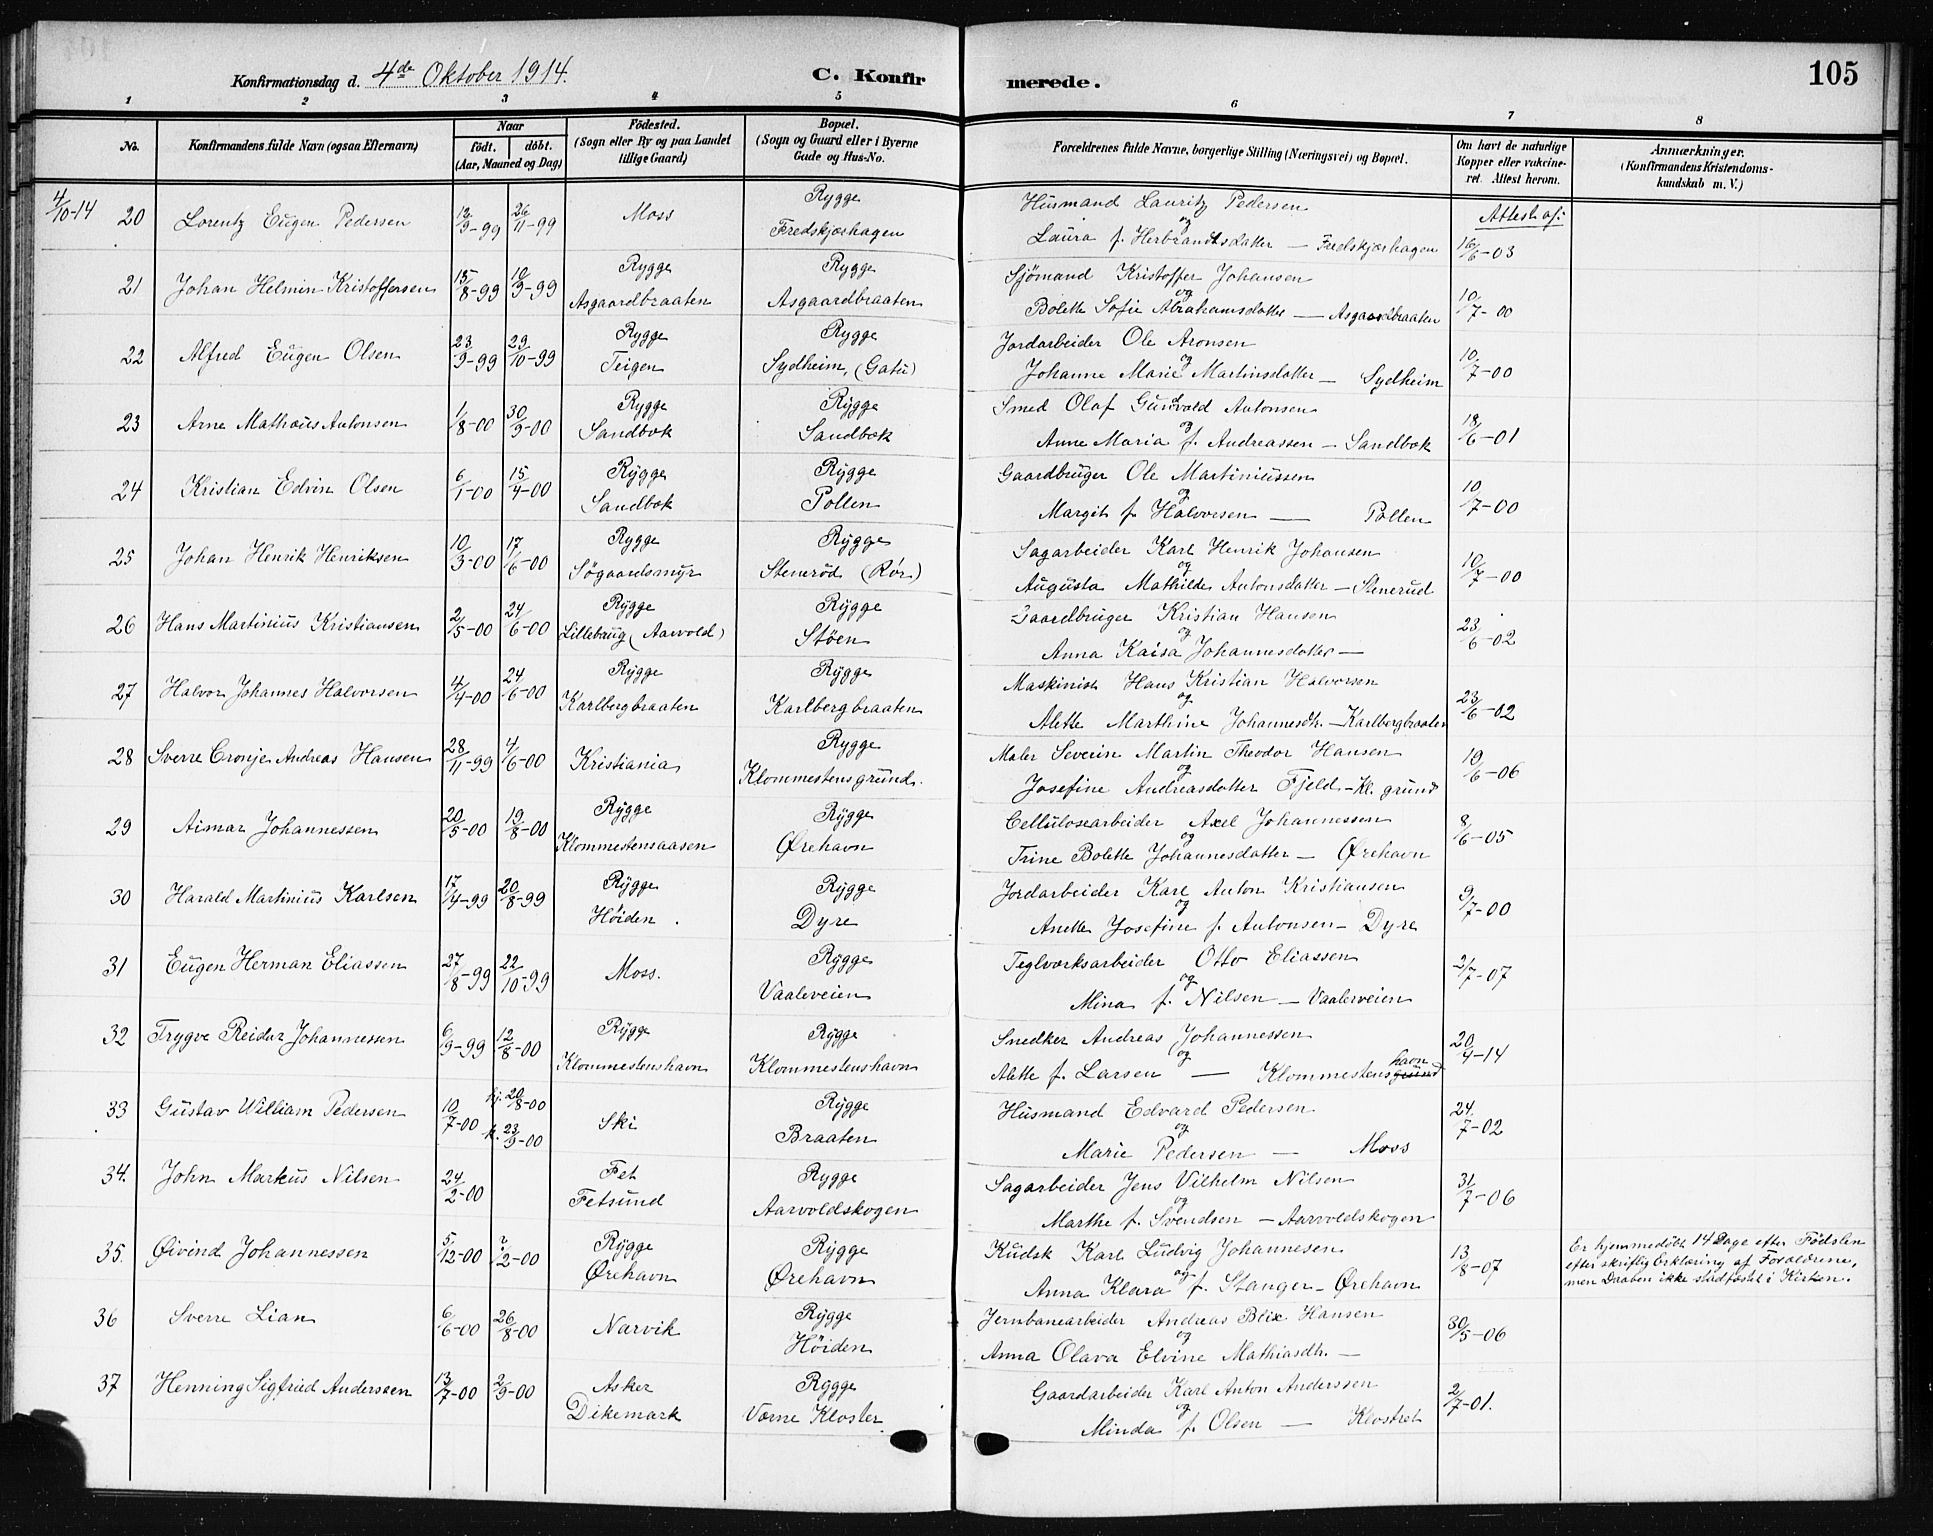 Konfirmationsdag d. 4de Oktober 1914.
C. Konfirmerede.
105
1 2 3 4 5 6 7 8
No.
Konfirmandens fulde Navn (ogsaa Efternavn)
Naar
født. døbt.
(Aar, Maaned og Dag)
Fødested.
(Sogn eller By og paa Landet
tillige Gaard)
Bopæl.
(Sogn og Gaard eller i Byerne
Gade og Hus-No.
Forældrenes fulde Navne, borgerlige Stilling (Næringsvei) og Bopæl.
Om havt de naturlige
Kopper eller vakcine-
ret. Attest herom.
Anmærkninger.
(Konfirmandens Kristendoms-
kundskab m. V.)
4/10-14 20 Lorentz Eugen Pedersen 12/9-99 26/11-99 Moss Rygge
Fredskjærhagen
Husmand Lauritz Pedersen
og
Laura f. Herbrandtsdatter — Fredskjærhagen
Attest af:
16/6-03
21 Johan Helmin Kristoffersen 15/8-99 10/9-99 Rygge
Asgaardbraaten
Rygge
Asgaardbraaten
Sjømand Kristoffer Johansen
og
Bolette Sofie Abrahamsdatter — Asgaardbraaten
10/7-00
22 Alfred Eugen Olsen 23/9-99 29/10-99 Rygge
Teigen
Rygge
Sydheim, (Gatu)
Jordarbeider Ole Aronsen
og
Johanne Marie Martinsdatter — Sydheim
10/7-00
23 Arne Mathæus Antonsen 1/8-00 30/9-00 Rygge
Sandbæk
Rygge
Sandbæk
Smed Olaf Gunvald Antonsen
og
Anne Maria f. Andreassen — Sandbæk
18/6-01
24 Kristian Edvin Olsen 6/1-00 15/4-00 Rygge
Sandbæk
Rygge
Pollen
Gaardbruger Ole Martiniussen
og
Margit f. Halvorsen — Pollen
10/7-00
25 Johan Henrik Henriksen 10/3-00 17/6-00 Rygge
Søgaardsmyr
Rygge
Stenerød (Rør)
Sagarbeider Karl Henrik Johansen
og
Augusta Mathilde Antonsdatter — Stenerud
10/7-00
26 Hans Martinius Kristiansen 2/5-00 24/6-00 Rygge
Lillebaug (Aarvold)
Rygge
Støen
Gaardbruger Kristian Hansen
og
Anna Kaisa Johannesdatter —
23/6-02
27 Halvor Johannes Halvorsen 4/4-00 24/6-00 Rygge
Karlbergbraaten
Rygge
Karlbergbraaten
Maskinist Hans Kristian Halvorsen
og
Alette Marthine Johannesdtr. — Karlbergbraaten
23/6-02
28 Sverre Cronje Andreas Hansen 28/11-99 4/6-00 Kristiania Rygge
Klommestensgrund.
Maler Severin Martin Theodor Hansen
og
Josefine Andreasdatter Fjeld — Kl. grund
19/6-06
29 Aimar Johannessen 20/5-00 19/8-00 Rygge
Klommestensaasen
Rygge
Ørehavn
Cellulosearbeider Axel Johannessen
og
Trine Bolette Johannesdatter — Ørehavn
8/6-05
30 Harald Martinius Karlsen 17/4-99 20/8-99 Rygge
Høiden.
Rygge
Dyre
Jordarbeider Karl Anton Kristiansen
og
Anette Josefine f. Antonsen — Dyre
9/7-00
31 Eugen Herman Eliassen 27/8-99 22/10-99 Moss. Rygge
Vaaleveien
Teglværksarbeider Otto Eliassen
og
Mina f. Nilsen — Vaalerveien
2/7-07
32 Trygve Reidar Johannessen 6/9-99 12/8-00 Rygge
Klommestenshavn
Rygge
Klommestenshavn
Snedker Andreas Johannessen
og
Alette f. Larsen — Klommestensgrund havn
20/4-14
33 Gustav William Pedersen 10/7-00 hj. 20/8-00
k. 23/9-00
Ski Rygge
Braaten
Husmand Edvard Pedersen
og
Marie Pedersen — Moss
24/7-02
34. John Markus Nilsen 24/2-00 Fet
Fetsund
Rygge
Aarvoldskogen
Sagarbeider Jens Vilhelm Nilsen
og
Marthe f. Svendsen — Aarvoldskogen
31/7-06
35. Øivind Johannessen 5/12-00 ?/12-00 Rygge
Ørehavn
Rygge
Ørehavn
Kudsk Karl Ludvig Johannesen
og
Anna Klara f. Stanger — Ørehavn
13/8-07
Er hjemmedøbt 14 Dage efter Fødslen
efter skriftlig Erklæring af Forældrene,
men Daaben ikke stadfæstet i Kirken.
36 Sverre Lian 6/6-00 26/8-00 Narvik Rygge
Høiden
Jernbanearbeider Andreas Blix Hansen
og
Anna Olava Elvine Mathiasdtr. —
30/5-06
37 Henning Sigfried Anderssen 13/7-00 2/9-00 Asker
Dikemark
Rygge
Værne Kloster
Gaardarbeider Karl Anton Anderssen
og
Minda f. Olsen — Klostret
2/7-01.